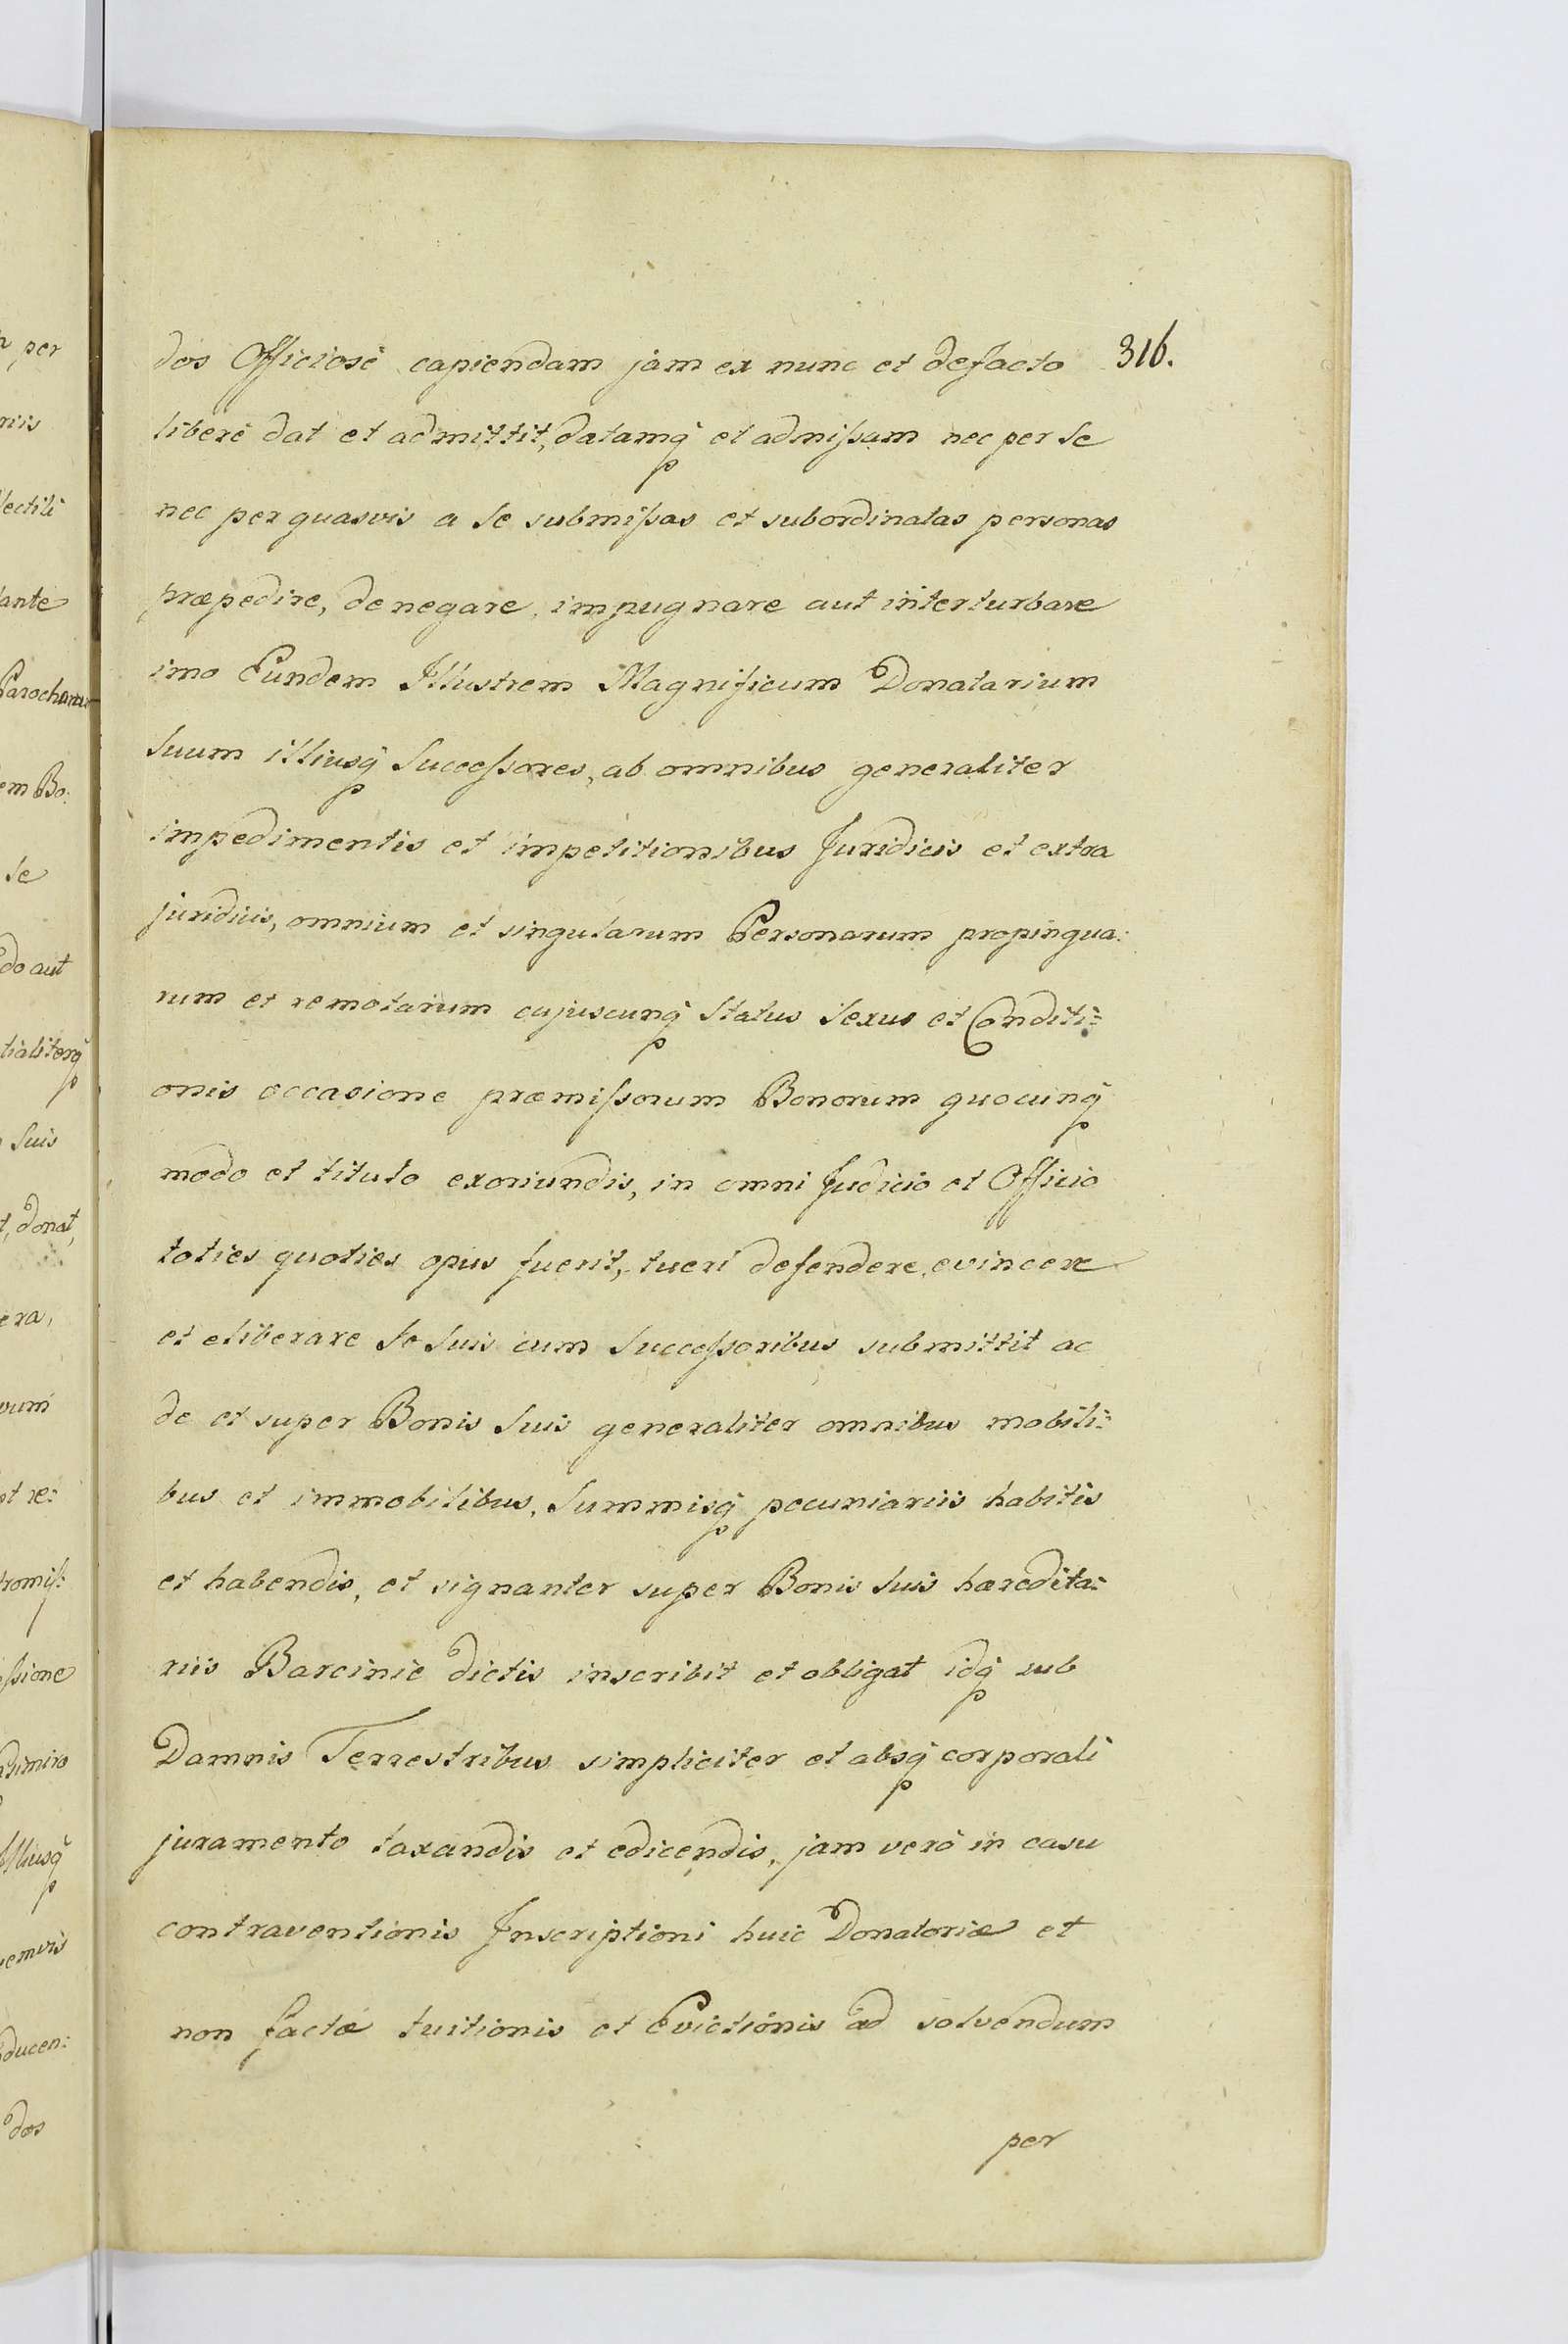 316.
dos Officiosè capiendam jam ex nunc et defacto
liberè dat et admittit, datamq̃ et admißam nec per se
nec per quasvis a se submißas et subordinatas personas
præpedire, denegare, impugnare aut interturbare
imo Eundem Illustrem Magnificum Donatarium
Suum illiusq̃ Succeßores, ab omnibus generaliter
impedimentis et impetitionibus Juridicis et extra
juridicis, omnium et singularum Personarum propinqua:
rum et remotarum cujuscunq̃ Status Sexus et Conditi:
onis occasione præmißorum Bonorum quocunq̃
modo et titulo exoriundis, in omni Judicio et Officio
toties quoties opus fuerit, tueri defendere, evincere
et eliberare Se Suis cum Succeßoribus submittit ac
de et super Bonis Suis generaliter omnibus mobili:
bus et immobilibus, Summisq̃ pecuniariis habitis
et habendis, et signanter super Bonis Suis hæredita:
riis Barcinie dictis inscribit et obligat idq̃ sub
Damnis Terrestribus simpliciter et absq̃ corporali
juramento taxandis et edicendis, jam verò in casu
contraventionis Inscriptioni huic Donatoriæ et
non factæ tuitionis et Evictionis ad solvendum
per